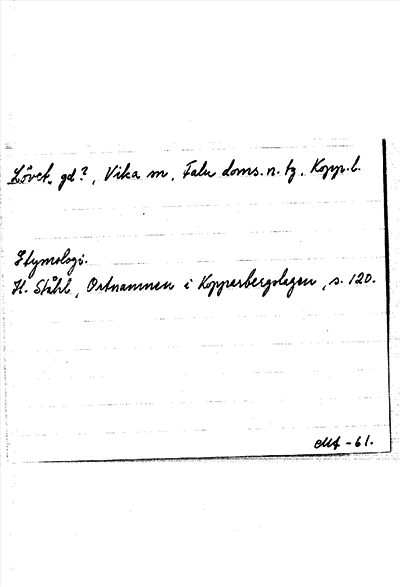 Lövet, gd?, Vika sn, Falu doms. n. tg, Kopp. l.
Etymologi.
H. Ståhl, Ortnamnen i Kopparbergslagen, s. 120.
-61.